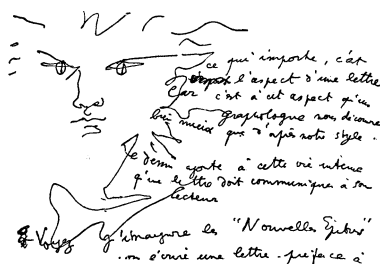 ce qui importe, c'est
l'aspect d'une lettre
Car c'est à cet aspect qu'un
graphologue nous découvre
bien mieux que d'après notre style.
le dessin ajoute à cette vie intense
qu'une lettre doit communiquer à son
lecteur
Voyez j'imagine les "Nouvelles
on écrire une lettre. préface à